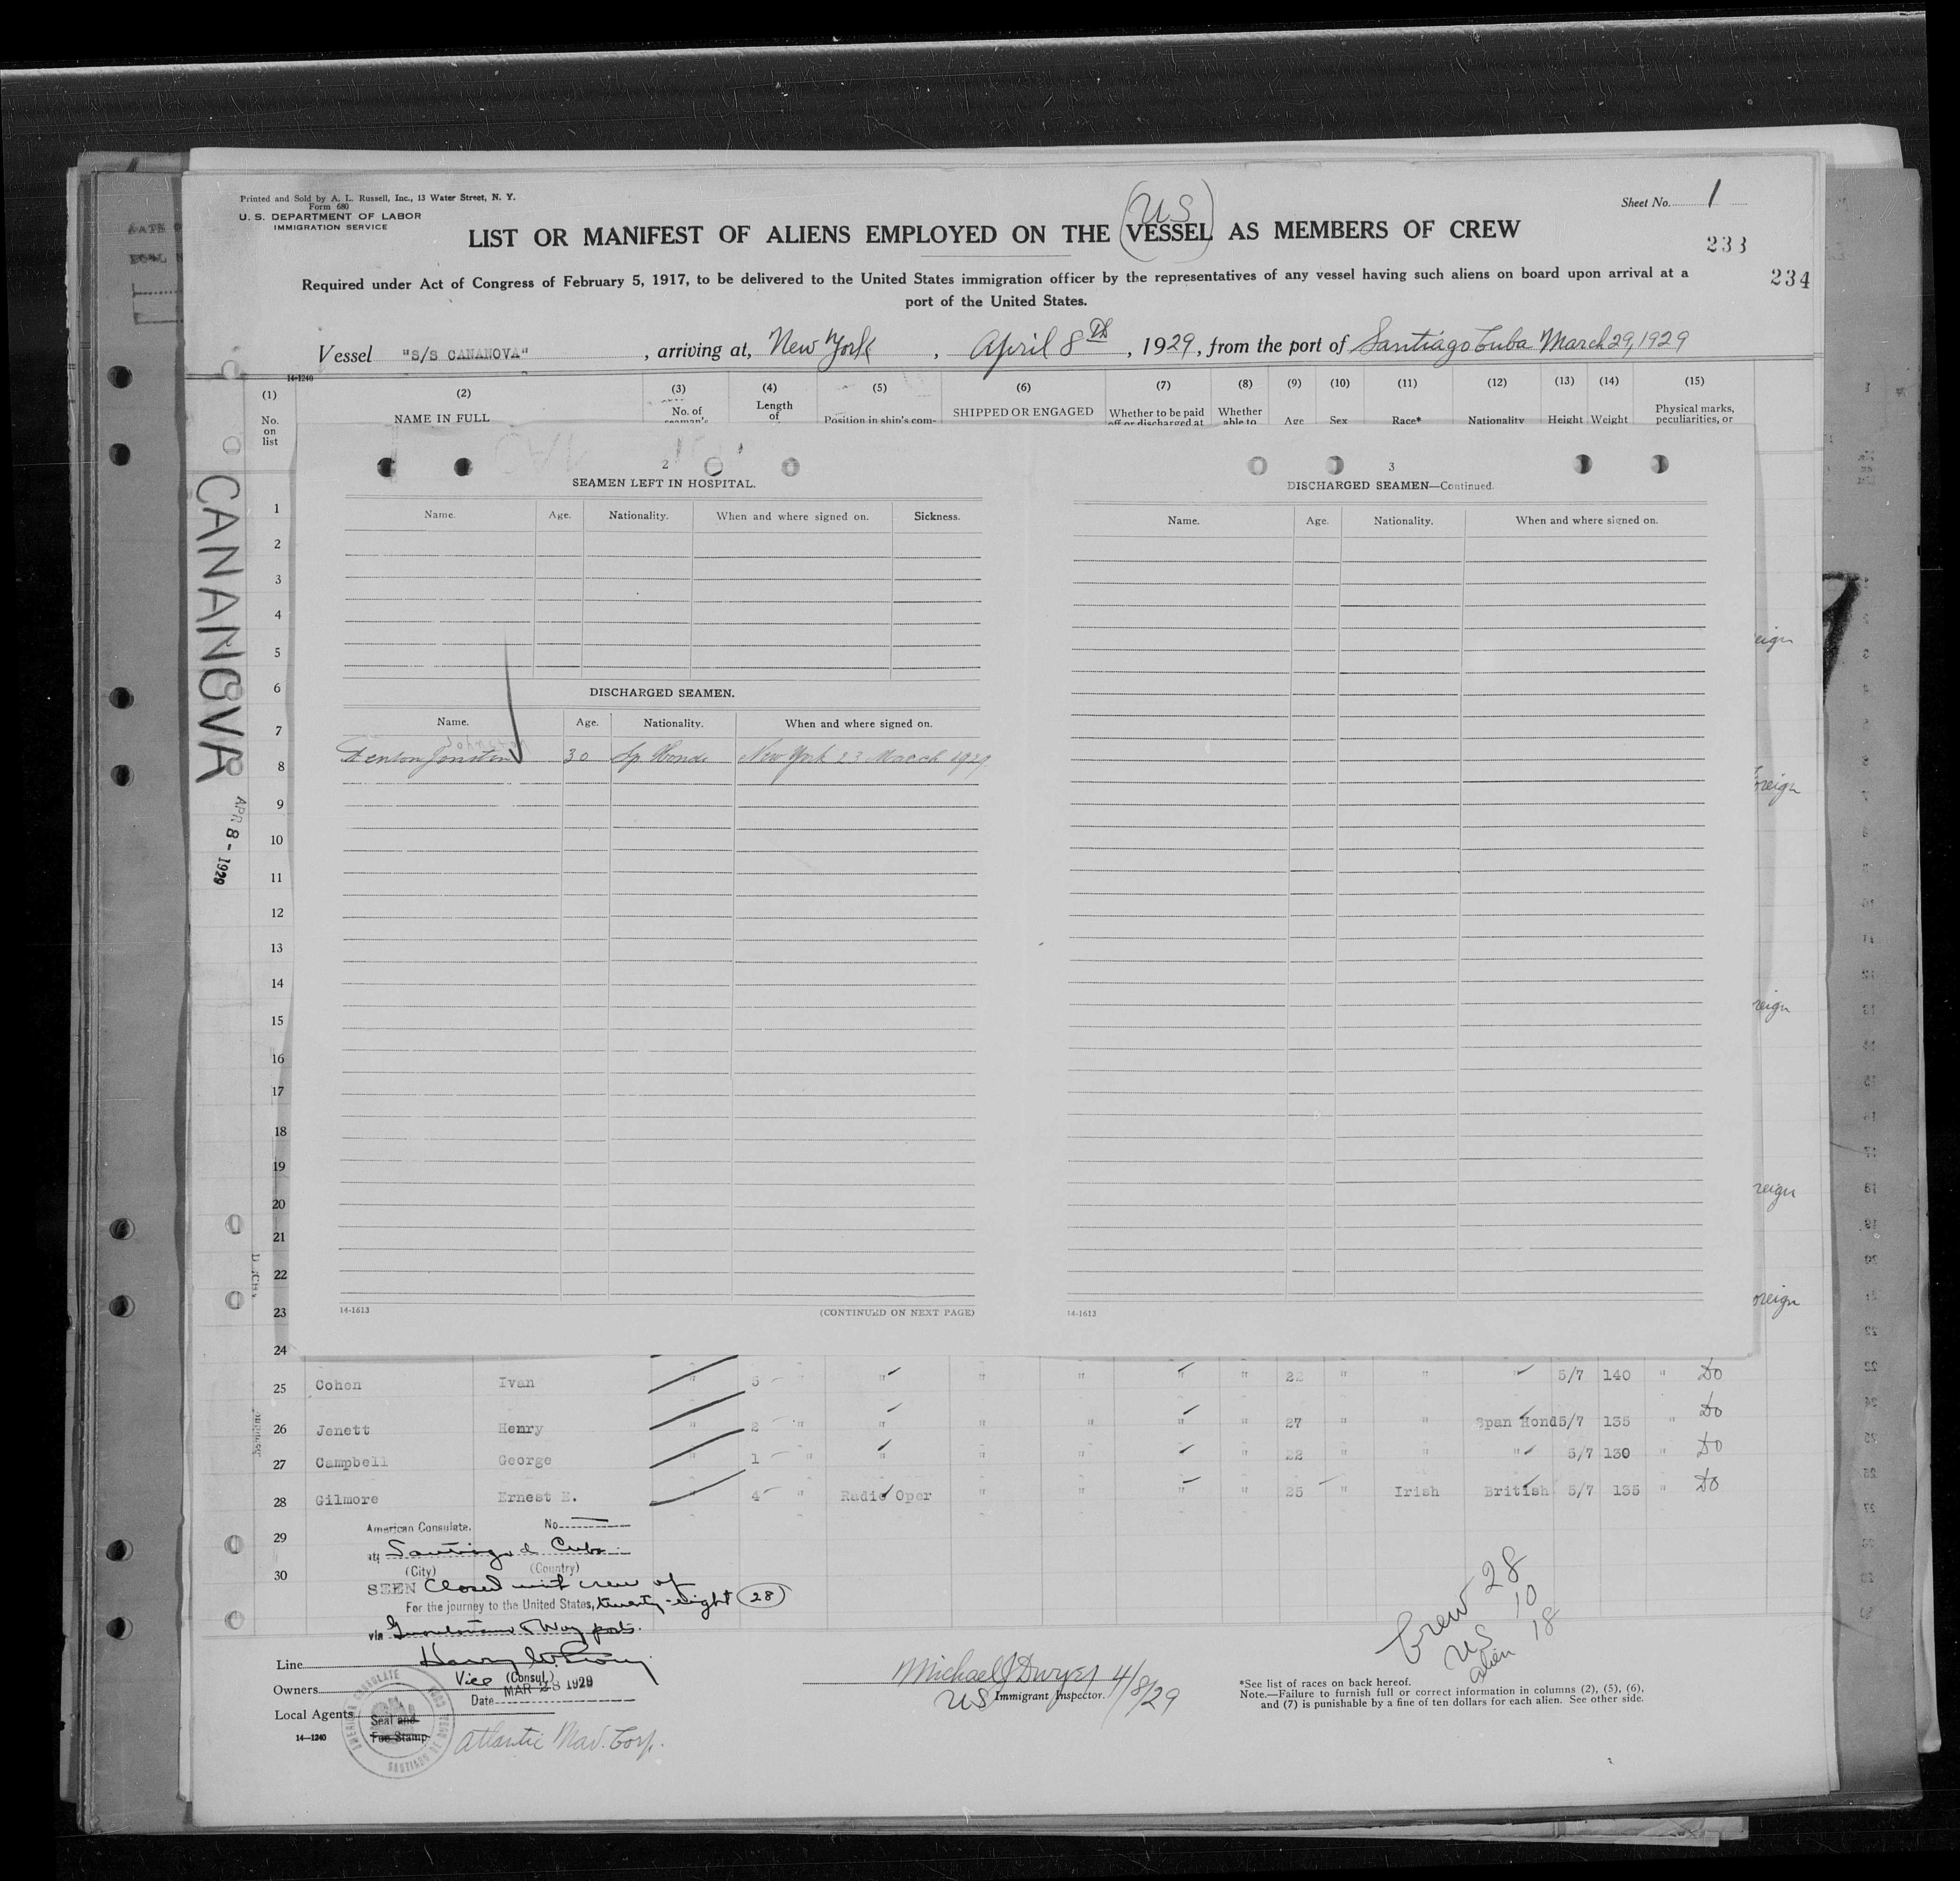 Printed and Sold by A. L. Russell, Inc., 13 Water Street, N. Y.
Form 680
U. S. DEPARTMENT OF LABOR
IMMIGRATION SERVICE
Sheet No. 1
US
LIST OR MANIFEST OF ALIENS EMPLOYED ON THE VESSEL AS MEMBERS OF CREW
233
234
Required under Act of Congress of February 5, 1917, to be delivered to the United States immigration officer by the representatives of any vessel having such aliens on board upon arrival at a
port of the United States.
Vessel "S/S CANANOVA", arriving at, New York, April 8th, 1929, from the port of Santiago Cuba March 29, 1929
14-1240
(1) (2) (3) (4) (5) (6) (7) (8) (9) (10) (11) (12) (13) (14) (15)
No. on list NAME IN FULL No. of seaman's Length of Position in ship's com- SHIPPED OR ENGAGED Whether to be paid off or discharged at Whether able to Age Sex Race* Nationality Height Weight Physical marks, peculiarities, or
CANANOVA
APR 8 - 1929
2
SEAMEN LEFT IN HOSPITAL.
Name. Age. Nationality. When and where signed on. Sickness.
DISCHARGED SEAMEN.
Name. Age. Nationality. When and where signed on.
30 Sp Hondu New York 23 March 1929
14-1613 (CONTINUED ON NEXT PAGE)
3
DISCHARGED SEAMEN—Continued.
Name. Age. Nationality. When and where signed on.
14-1613
1
2
3
4
5
6
7
8
9
10
11
12
13
14
15
16
17
18
19
20
21
22
23
24
25 Cohen Ivan " 5 " " " " " " 22 " " " 5/7 140 " Do
26 Jenett Henry " 2 " " " " " " 27 " " Span Hond 5/7 135 " Do
27 Campbell George " 1 " " " " " " 22 " " " 5/7 130 " Do
28 Gilmore Ernest E. " 4 " Radio Oper " " " " 25 " Irish British 5/7 135 " Do
29
30
American Consulate. No.
at Santiago de Cuba
(City) (Country)
SEEN Closed with crew of
For the journey to the United States, twenty-eight (28)
via Way ports.
Line
Vice (Consul)
Owners
MAR 28 1929
Date
Local Agents
Seal and
Fee Stamp
AMERICAN CONSULATE
SANTIAGO DE CUBA
14-1240
Atlantic Nav. Corp.
Michael J Dwyer 4/8/29
US Immigrant Inspector.
Crew 28
US 10
alien 18
*See list of races on back hereof.
Note.—Failure to furnish full or correct information in columns (2), (5), (6),
and (7) is punishable by a fine of ten dollars for each alien. See other side.
eign
oreign
reign
reign
oreign